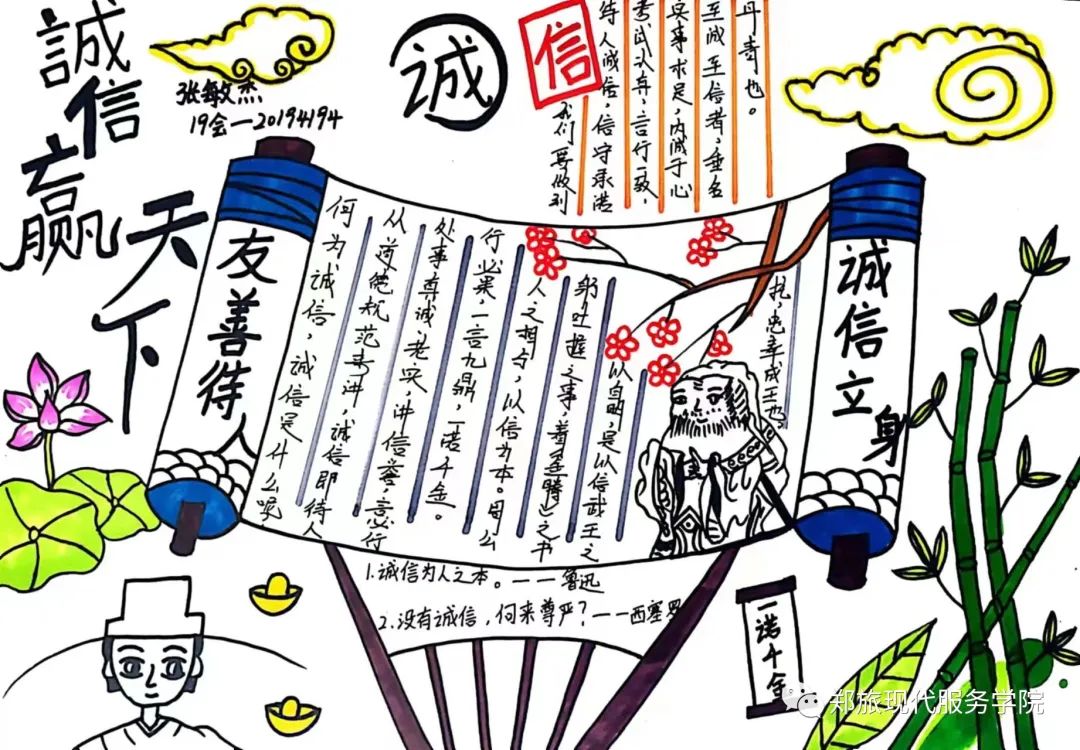 誠信赢天下
张敏杰
19会一20194194
诚
信
我们要做到
待人诚信,信守承诺
考试认真,言行一致,
实事求是,内诚于心
至诚至信者,垂名
丹青也。
友善待人
何为诚信,诚信是什么呢
从道德规范来讲,诚信即待人
处事真诚、老实、讲信誉,言必行
行必果,一言九鼎,一诺千金。
人之相与,以信为本。周公
躬吐握之事,着金縢之书
以鸣,是以信武王之
托,忠幸成王也
诚信立身
1.诚信为人之本。——鲁迅
2.没有诚信,何来尊严?——西塞罗
一诺千金
郑旅现代服务学院